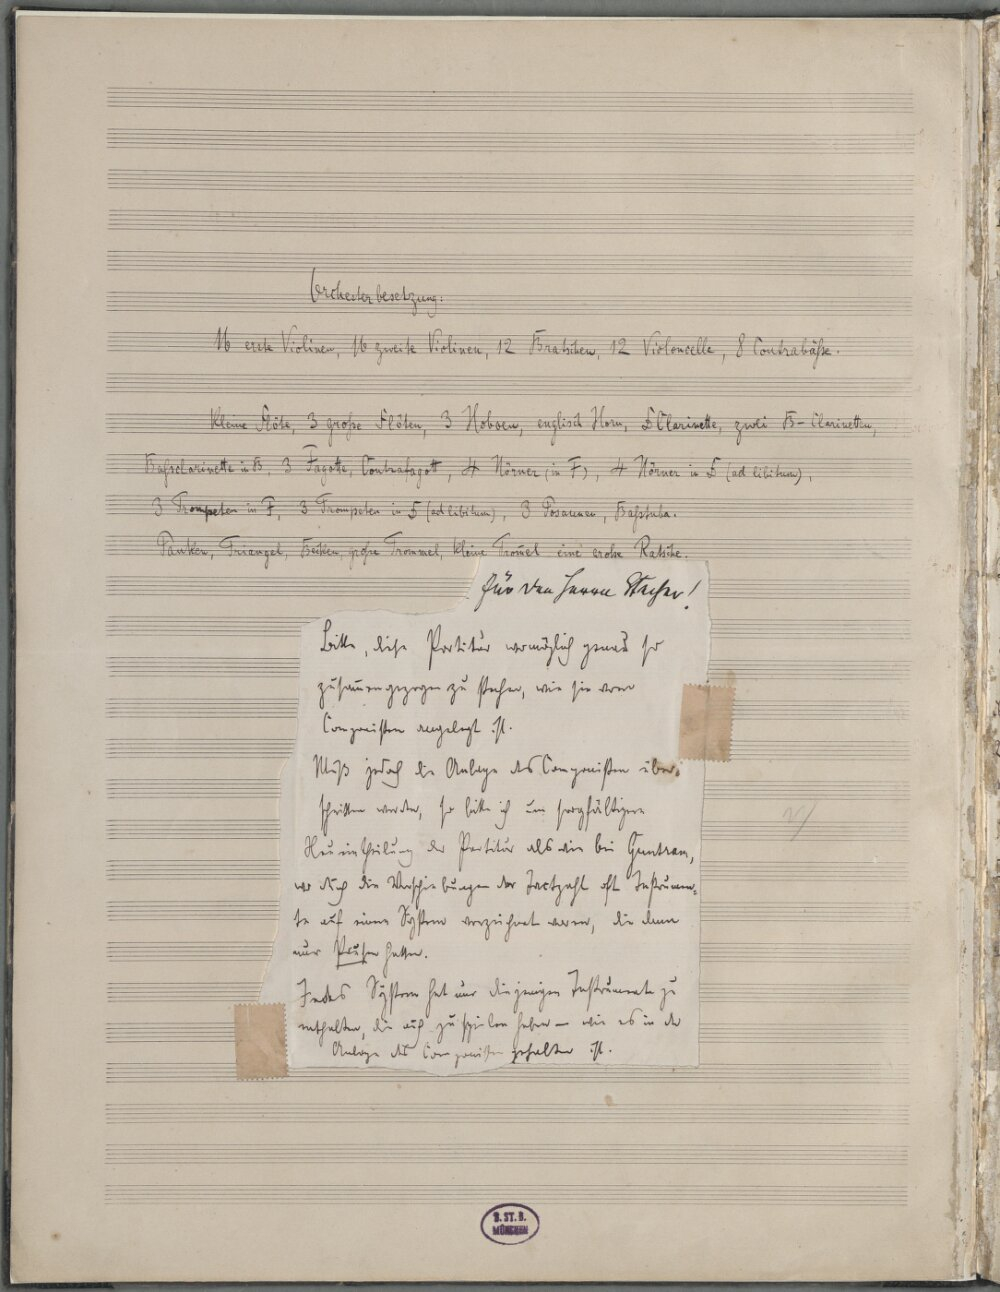 Orchesterbesetzung:
16 erste Violinen, 16 zweite Violinen, 12 Bratschen, 12 Violoncelle, 8 Contrabäße.
Kleine Flöte, 3 große Flöten, 3 Hoboen, englisch Horn, Clarinette, zwei B-Clarinetten,
Baßclarinette in B, 3 Fagotte, Contrafagott, 4 Hörner (in F), 4 Hörner in (ad libitum),
3 Trompeten in F, 3 Trompeten in (ad libitum), 3 Posaunen, Baßtuba.
Pauken, Triangel, Becken, große Trommel, kleine Trom̄el eine große Ratsche.
Für den Herrn Stecher!
Bitte, diese Partitur womöglich genau so
zusam̄engezogen zu stechen, wie sie vom
Componisten angelegt ist.
Muß jedoch die Anlage des Componisten über-
schritten werden, so bitte ich um sorgfältigere
Neueintheilung der Partitur als wie bei Guntram,
wo durch die Verschiebungen der Tactzahl oft Instrumen-
te auf einem System verzeichnet waren, die dann
nur Pausen hatten.
Jedes System hat nur diejenigen Instrumente zu
enthalten, die auch zu spielen haben – wie es in der
Anlage des Componisten gehalten ist.
B. ST. B.
MÜNCHEN